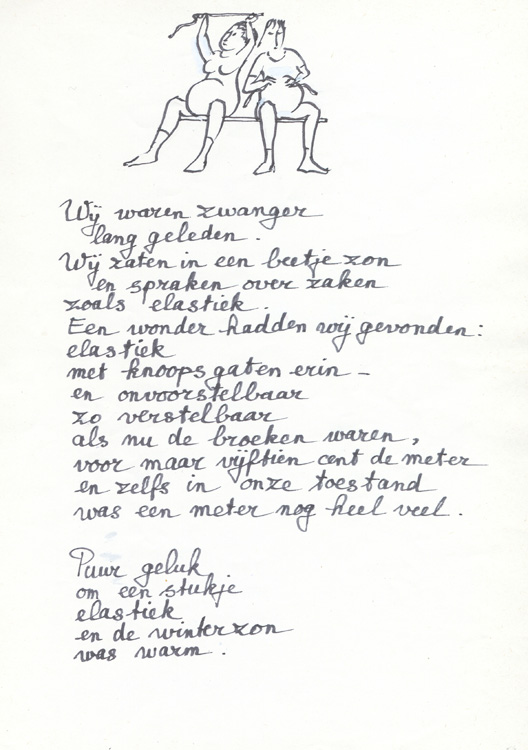 Wij waren zwanger
lang geleden.
Wij zaten in een beetje zon
en spraken over zaken
zoals elastiek.
Een wonder hadden wij gevonden:
elastiek
met knoopsgaten erin –
en onvoorstelbaar
zo verstelbaar
als nu de broeken waren,
voor maar vijftien cent de meter
en zelfs in onze toestand
was een meter nog heel veel.

Puur geluk
om een stukje
elastiek
en de winterzon
was warm.